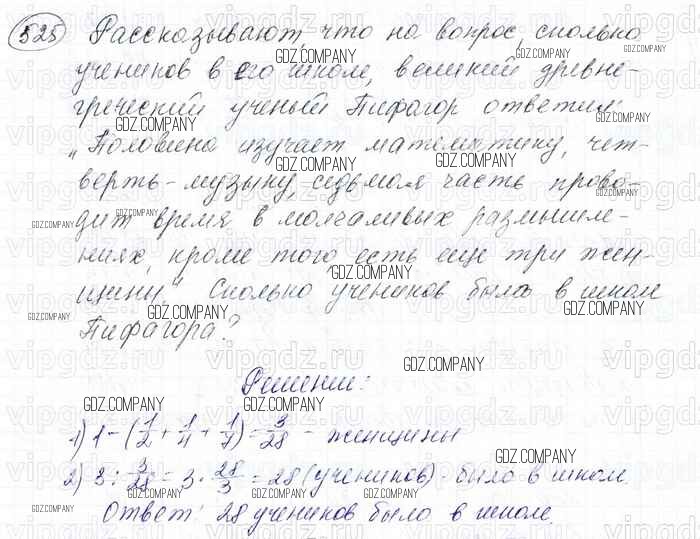 525 Рассказывают, что на вопрос, сколько
учеников в его школе, великий древне-
греческий ученый Пифагор ответил:
"Половина изучает математику, чет-
верть - музыку, седьмая часть прово-
дит время в молчаливых размышле-
ниях, кроме того есть еще три жен-
щины". Сколько учеников было в школе
Пифагора?
Решение:
1) 1 - (1/2 + 1/4 + 1/7) = 3/28 - женщины
2) 3 : 3/28 = 3 · 28/3 = 28 (учеников) - было в школе.
Ответ: 28 учеников было в школе.
GDZ.COMPANY
vipgdz.ru